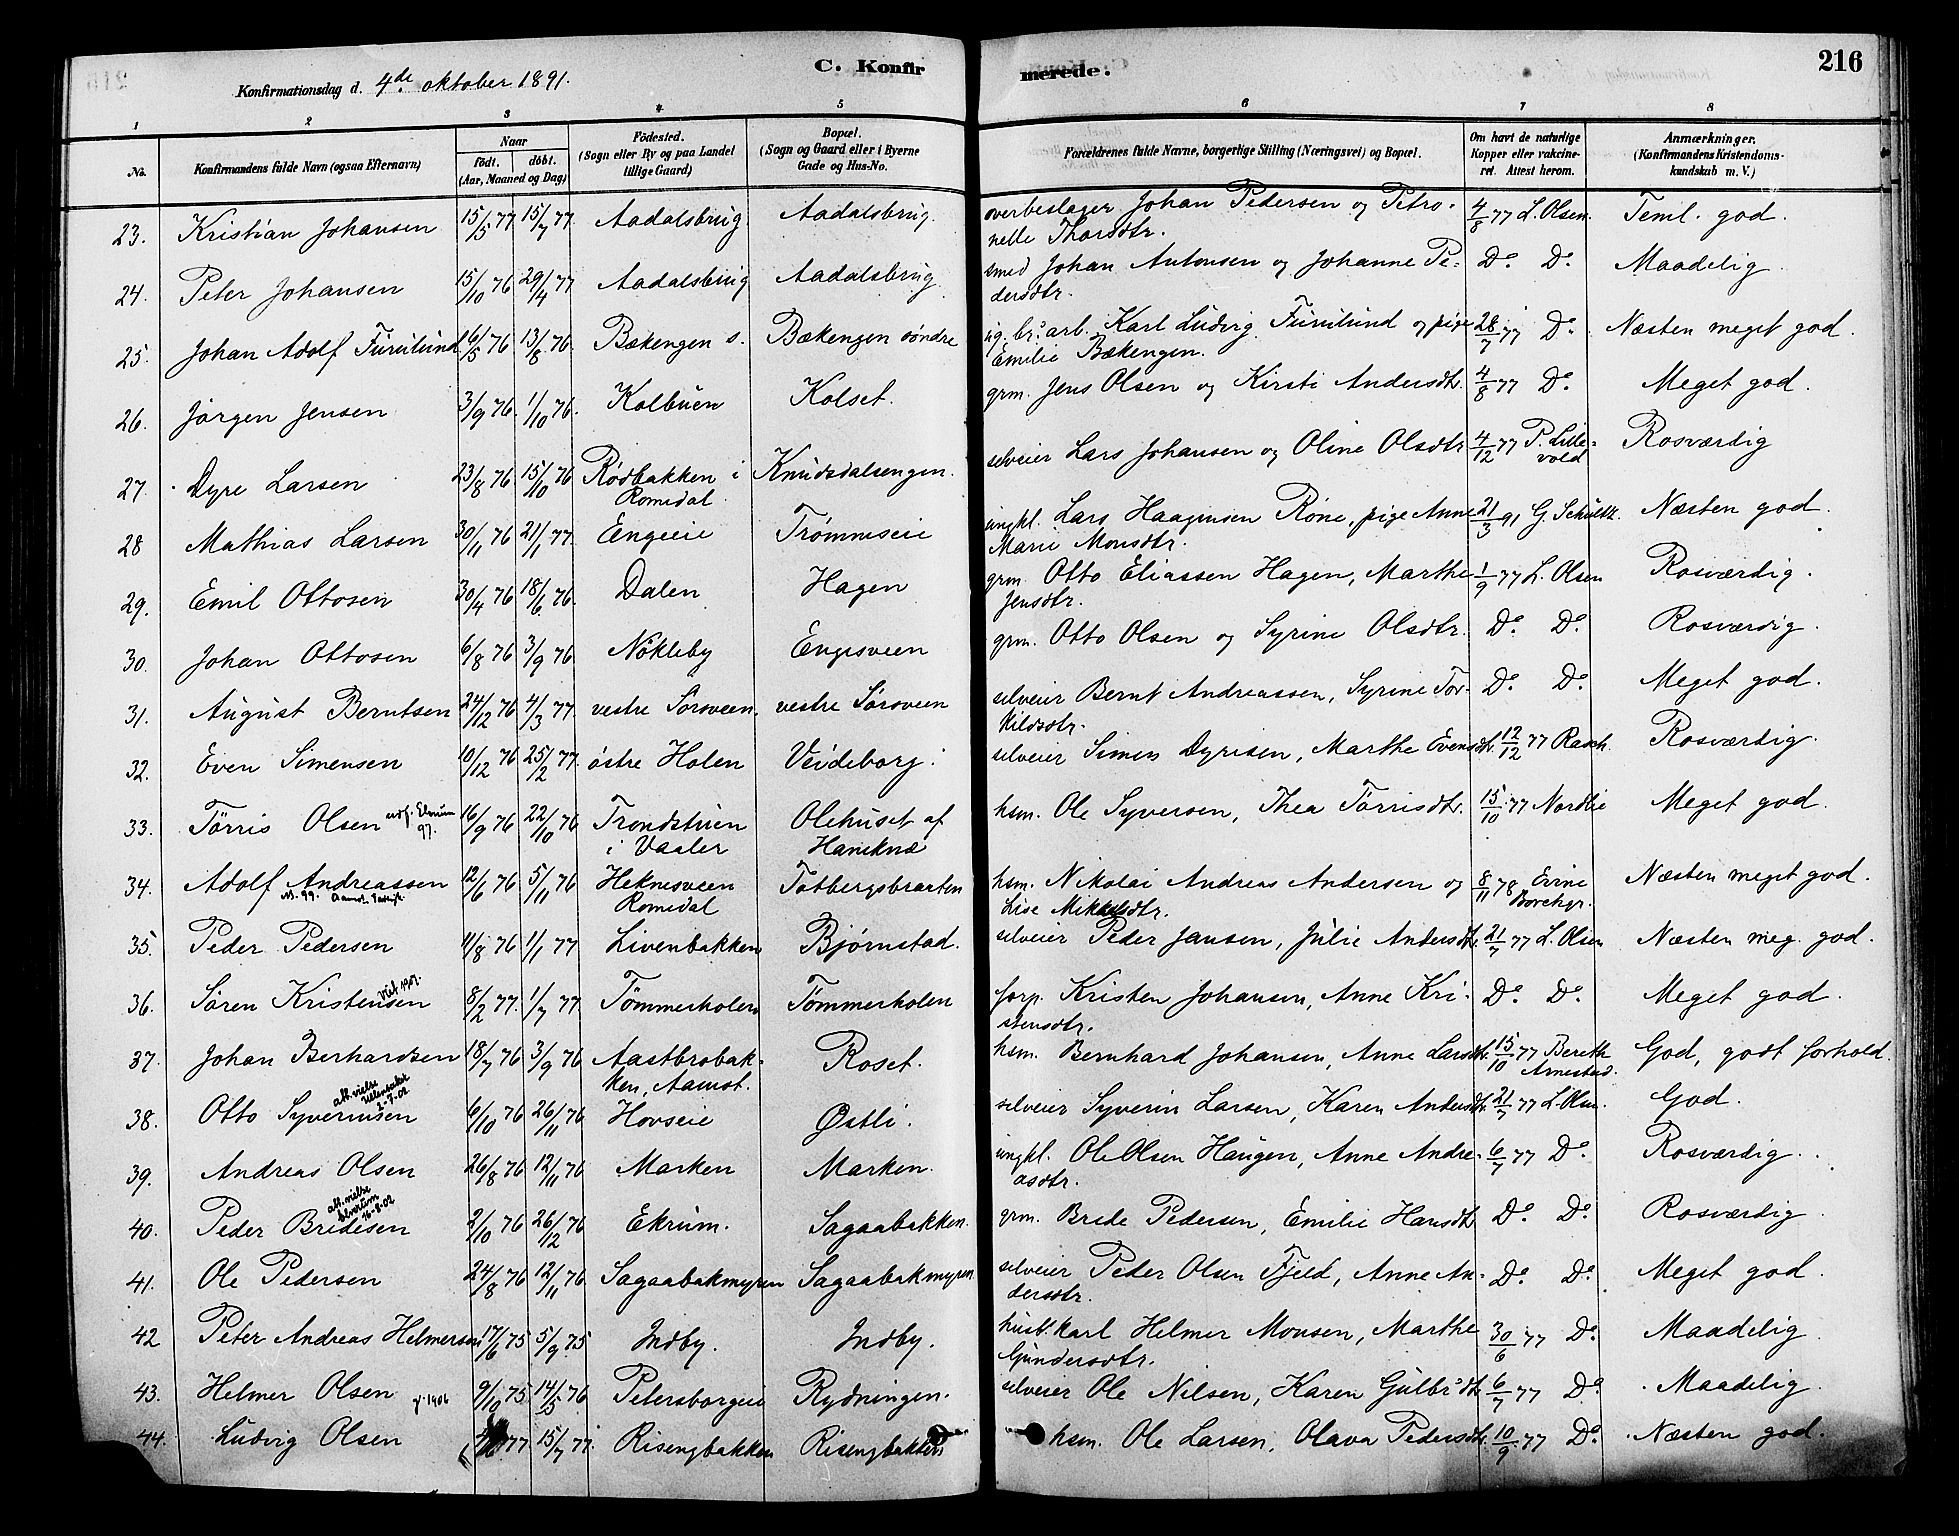 C. Konfirmerede. 216
Konfirmationsdag d. 4de oktober 1891.
1 2 3 4 5 6 7 8
No. Konfirmandens fulde Navn (ogsaa Efternavn) Naar født. døbt. (Aar, Maaned og Dag) Födested. (Sogn eller By og paa Landet tillige Gaard) Bopæl. (Sogn og Gaard eller i Byerne Gade og Hus-No. Forældrenes fulde Navne, borgerlige Stilling (Næringsvei) og Bopæl. Om havt de naturlige Kopper eller vakcineret. Attest herom. Anmærkninger. (Konfirmandens Kristendomskundskab m. V.)
23. Kristian Johansen 15/5 77 15/7 77. Aadalsbrug Aadalsbrug. overbeslager Johan Pedersen og Petronelle Thorsdtr. 4/8 77 L. Olsen. Teml. god.
24. Peter Johansen 15/10 76 29/4 77 Aadalsbrug Aadalsbrug smed Johan Antonsen og Johanne Pedersdtr. Do. Do. Maadelig.
25. Johan Adolf Furulund 16/5 76 13/8 76 Bækengen s. Bækengen søndre ug. br. arb. Karl Ludvig Furulund og pige Emilie Bækengen. 28/7 77 Do. Næsten meget god.
26. Jørgen Jensen 3/9 76. 1/10 76. Kolbuen Kolset. grm. Jens Olsen og Kirsti Andersdtr. 4/8 77 Do. Meget god.
27. Dyre Larsen 23/8 76 15/10 76 Rødbakken i Romedal. Knudsdalsengen. selveier Lars Johansen og Oline Olsdtr 4/12 77 P. Lillevold Rosværdig
28 Mathias Larsen 30/11 76 21/1 77. Engeie Trømmeseie ungkl. Lars Haagensen Røne, pige Anne Marie Monsdtr. 21/3 91 G. Schultz. Næsten god.
29. Emil Ottosen 30/4 76 18/6 76. Dalen Hagen grm. Otto Eliassen Hagen, Marthe Jensdtr. 1/9 77 L. Olsen Rosværdig.
30. Johan Ottosen 6/8 76 3/9 76 Nökleby Engesveen grm. Otto Olsen og Syrine Olsdtr. Do. Do. Rosværdig.
31. August Berntsen 24/12 76 4/3 77. vestre Sörsveen. vestre Sörsveen selveier Bernt Andreassen, Syrine Torkildsdtr. Do. Do. Meget god.
32. Even Simensen 10/12 76 25/2 77. østre Holen Veideborg. selveier Simen Dyresen, Marthe Evensdtr. 12/12 77 Rasch. Rosværdig.
33. Tørris Olsen udf. Elverum 97. 16/9 76 22/10 76 Trondstuen i Vaaler Olehuset af Haneknæ hsm. Ole Syversen, Thea Tørrisdtr. 15/10 77 Nordlie Meget god.
34. Adolf Andreassen 12/6 76 5/11 76 Heknesveen Romedal Totbergsbraaten hsm. Nikolai Andreas Andersen og Lise Mikkelsdtr. 8/11 78 Evine Borchgr. Næsten meget god.
35. Peder Pedersen 11/8 76 1/1 77. Livenbakken Bjørnstad. selveier Peder Jansen, Julie Andersdtr. 21/7 77 L. Olsen Næsten meg. god.
36. Sören Kristensen 8/2 77. 1/7 77. Tömmerholen Tömmerholen forp. Kristen Johansen, Anne Kristensdtr. Do. Do. Meget god.
37. Johan Berhardsen 18/7 76 3/9 76 Aastbrobakken, Aamot. Roset. hsm. Bernhard Johansen, Anne Larsdtr. 15/10 77 Bereth Arnestad. God, godt forhold.
38. Otto Syverinsen att. vielse 2-7-02 6/10 76 26/11 76 Hovseie Østli. selveier Syverin Larsen, Karen Andersdtr. 21/7 77 L. Olsen. God.
39. Andreas Olsen 26/8 76 12/11 76 Marken Marken. ungkl. Ole Olsen Haugen, Anne Andreasdtr. 6/7 77 Do. Rosværdig.
40. Peder Bredesen att. vielse Elverum 16-8-02 2/10 76 26/12 76 Ekrum. Sagaabakken. grm. Brede Pedersen, Emilie Hansdtr Do. Do. Rosværdig.
41. Ole Pedersen 24/8 76 12/11 76 Sagaabakmyren Sagaabakmyren. selveier Peder Olsen Fjeld, Anne Andersdtr. Do. Do. Meget god.
42 Peter Andreas Helmersen 17/6 75 5/9 75 Indby. Indby. husb. karl Helmer Monsen, Marthe Gundersdtr. 30/6 77 Do. Maadelig.
43. Helmer Olsen 1906 9/10 75 14/5 76 Petersborgeie Rydningen. selveier Ole Nilsen, Karen Gulbrdtr. 6/7 77 Do. Maadelig.
44. Ludvig Olsen 77 15/7 77. Risengbakken Risengbakken hsm. Ole Larsen, Olava Pedersdtr. 10/9 77 Do. Næsten god.